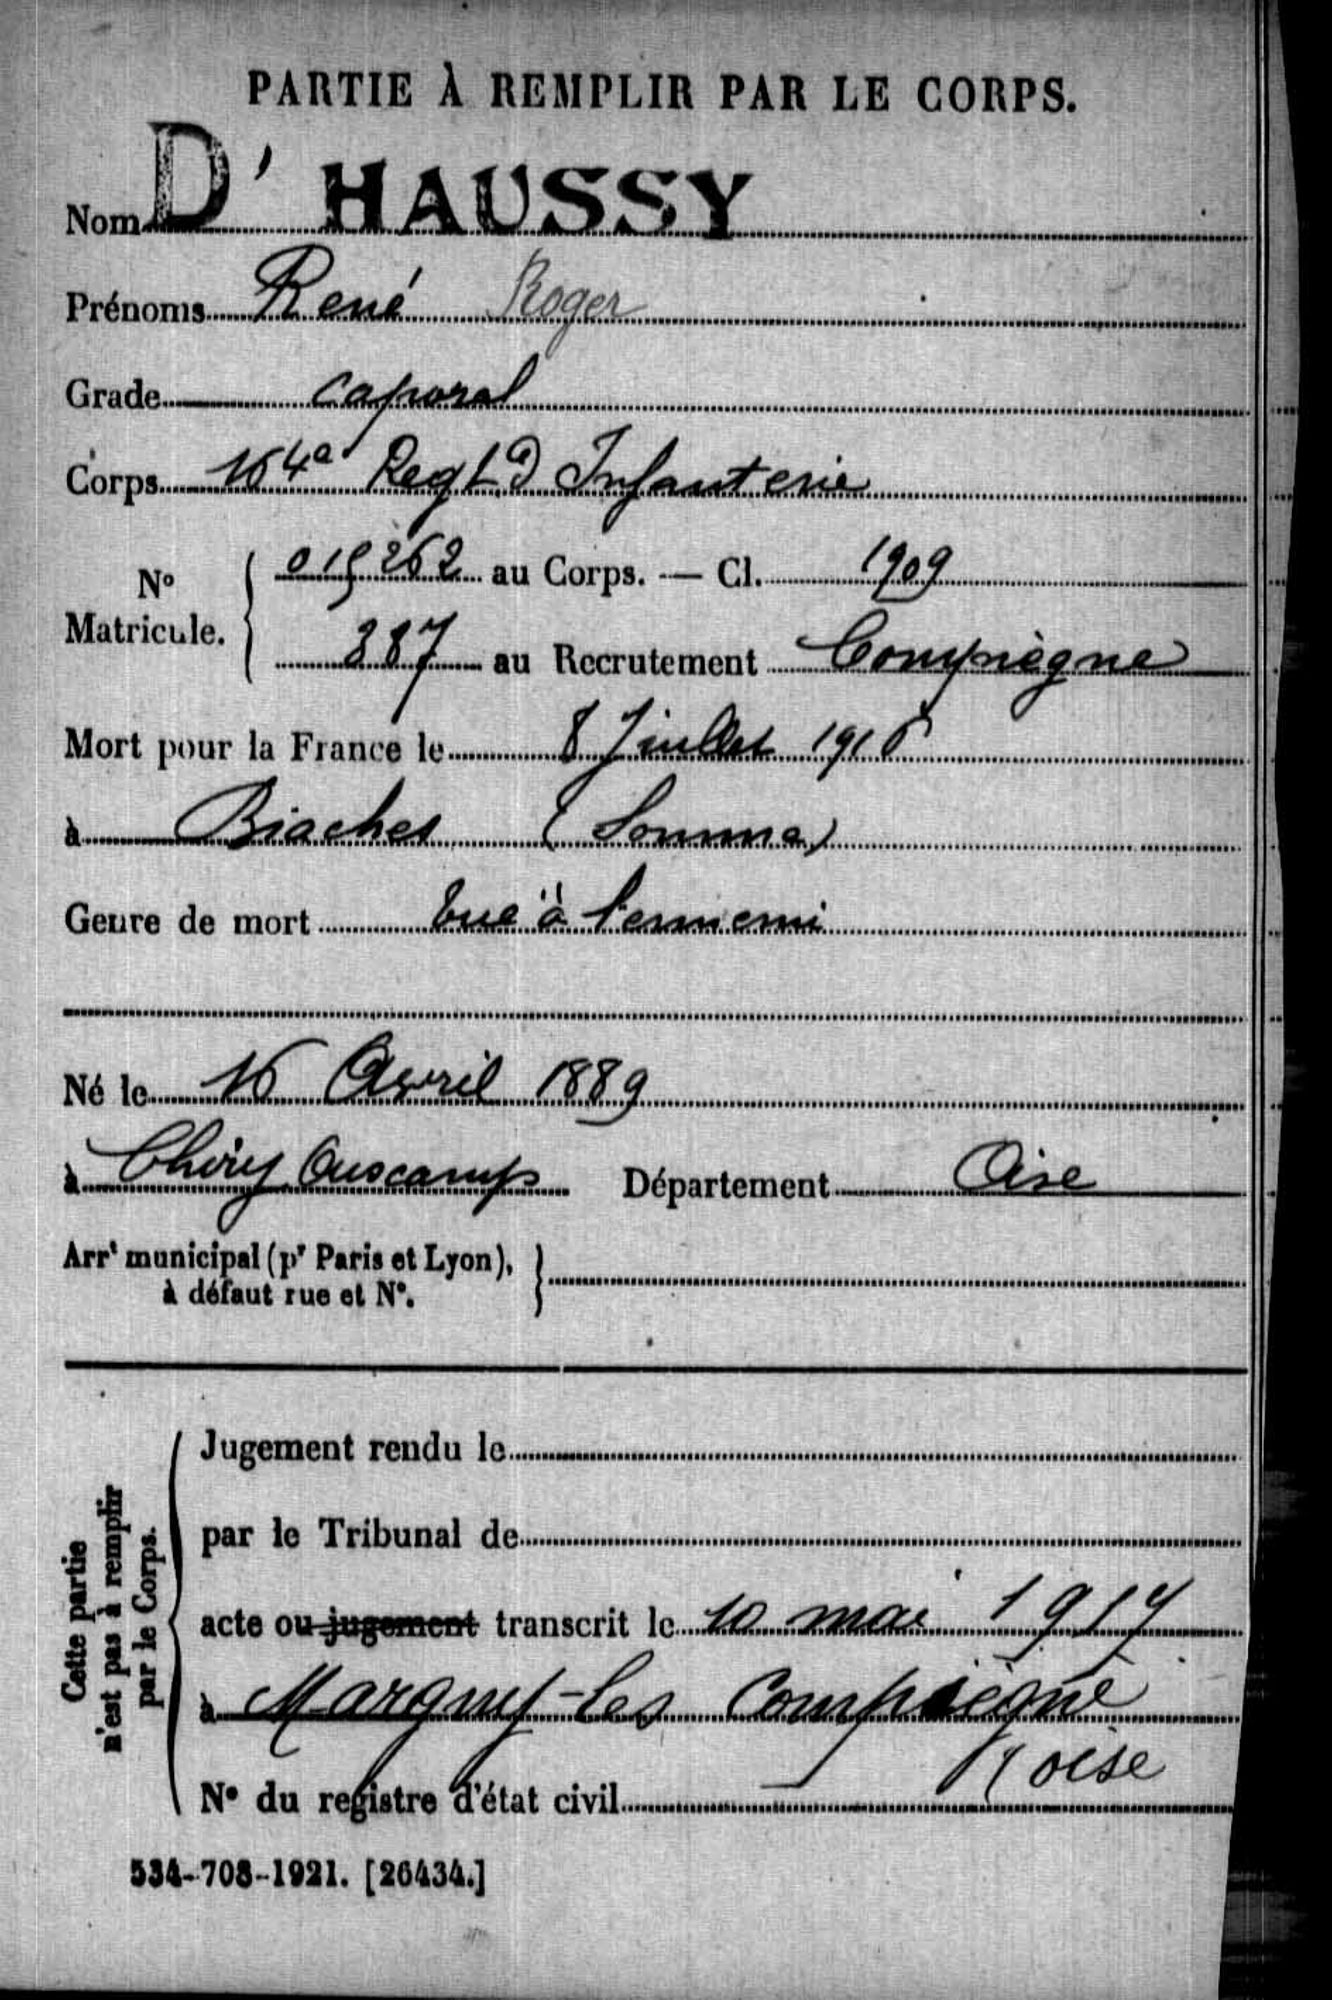 PARTIE À REMPLIR PAR LE CORPS.
Nom D' HAUSSY
Prénoms René Roger
Grade caporal
Corps 164e Regt D Infanterie
No Matricule. 019262 au Corps. — Cl. 1909
387 au Recrutement Compiègne
Mort pour la France le 8 Juillet 1916
à Biaches (Somme)
Genre de mort tué à l'ennemi
Né le 16 Avril 1889
à Chiry Ourscamps Département Oise
Arrt municipal (pr Paris et Lyon),
à défaut rue et No.
Cette partie
n'est pas à remplir
par le Corps.
Jugement rendu le
par le Tribunal de
acte ou jugement transcrit le 10 mai 1917
à Margny-les Compiègne
Oise
No du registre d'état civil
534-708-1921. [26434.]